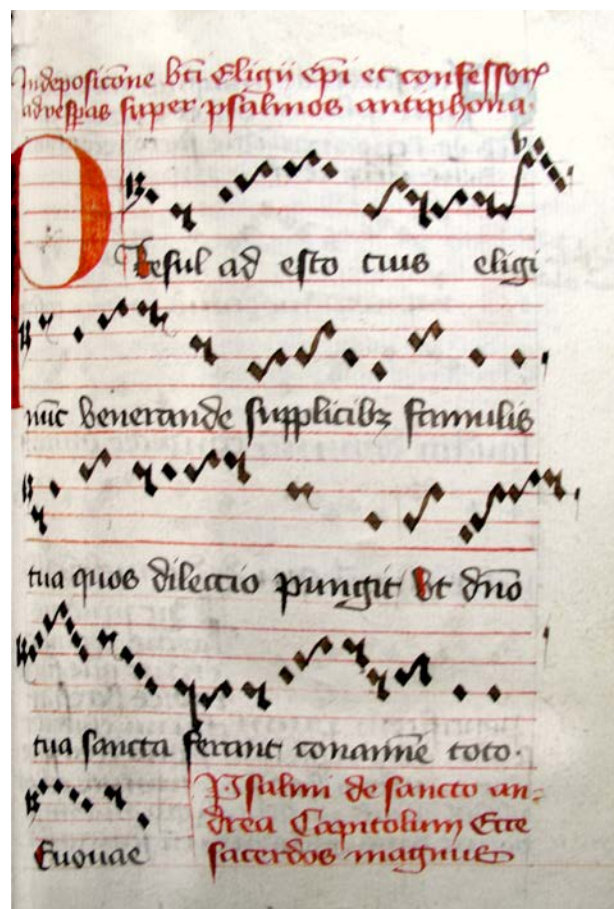 In deposicõne bti Eligii epi et confessorꝭ
ad vesꝑas super psalmos antiphona.
Presul ad esto tuus eligi
nũc venerande supplicibꝫ famulis
tua quos dilectio pungit Vt dño
tua sancta ferant conamine toto.
Psalmi de sancto an-
drea Capitolum Ecce
Euouae sacerdos magnus